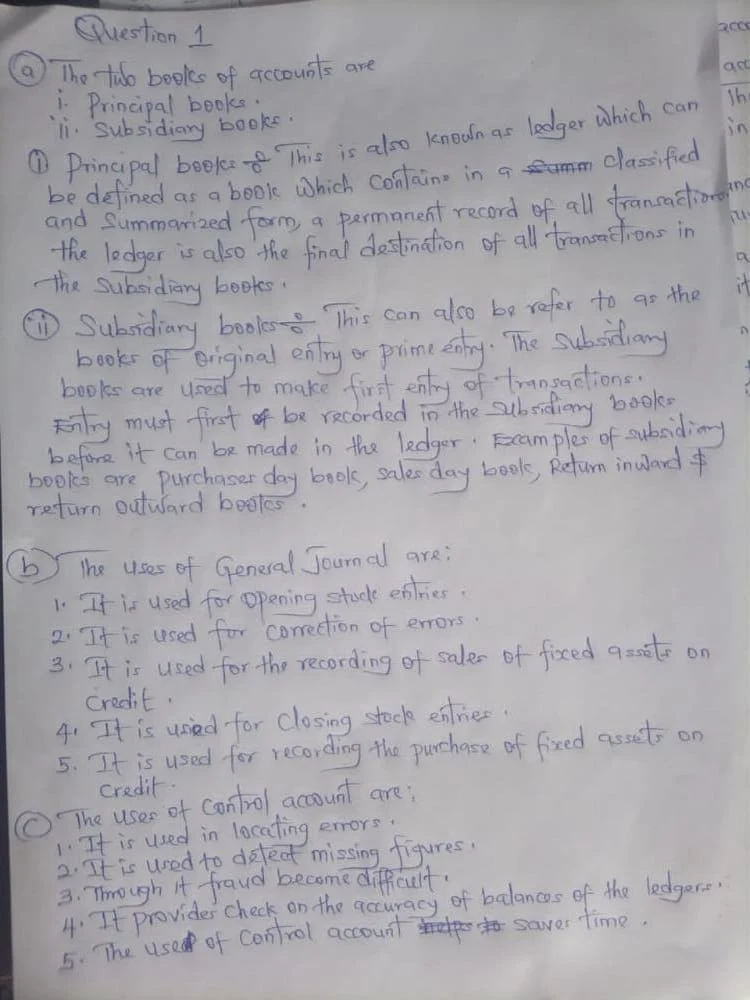 Question 1
(a) The two books of accounts are
i. Principal books.
ii. Subsidiary books.
(i) Principal books : This is also known as ledger which can
be defined as a book which contains in a classified
and summarized form, a permanent record of all transactions
the ledger is also the final destination of all transactions in
the subsidiary books.
(ii) Subsidiary books : This can also be refer to as the
books of original entry or prime entry. The subsidiary
books are used to make first entry of transactions.
Entry must first be recorded in the subsidiary books
before it can be made in the ledger. Examples of subsidiary
books are purchases day book, sales day book, Return inward &
return outward books.
(b) The uses of General Journal are:
1. It is used for opening stock entries.
2. It is used for correction of errors.
3. It is used for the recording of sales of fixed assets on
credit.
4. It is used for closing stock entries.
5. It is used for recording the purchase of fixed assets on
credit.
(c) The uses of control account are:
1. It is used in locating errors.
2. It is used to detect missing figures.
3. Through it fraud become difficult.
4. It provides check on the accuracy of balances of the ledgers.
5. The use of control account saves time.